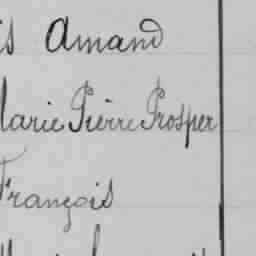 is Amand
Marie Pierre Prosper
François